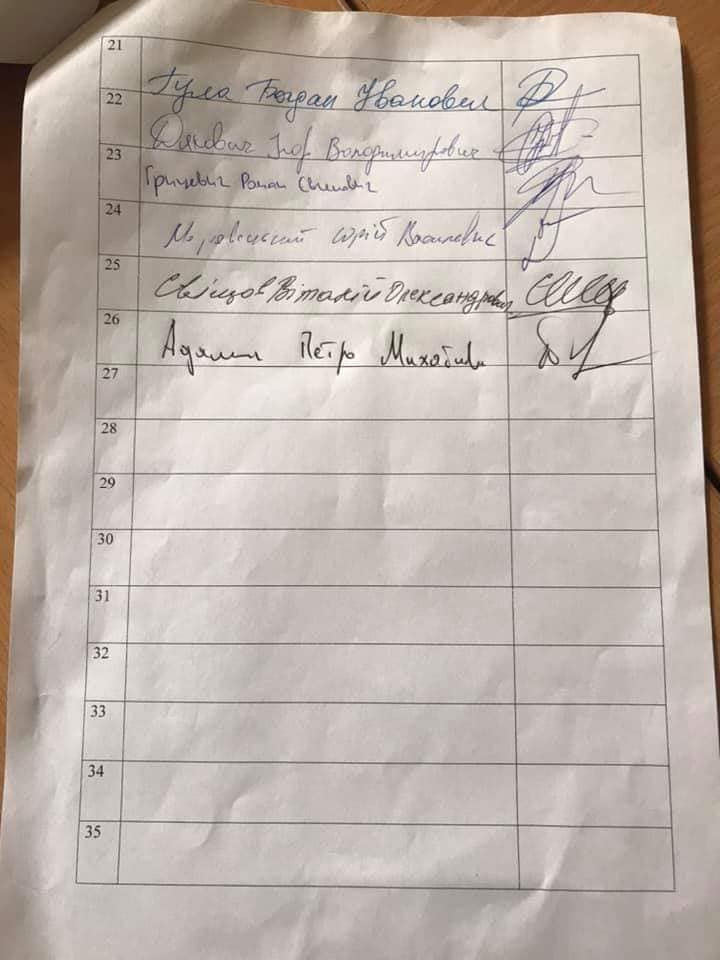 21
Гула Богдан Іванович
22
Дякович Ігор Володимирович
23
Грицевич Роман Євгенович
24
Юрій Васильович
25
Свінцов Віталій Олександрович
26
Адамик Петро Михайлович
27
28
29
30
31
32
33
34
35